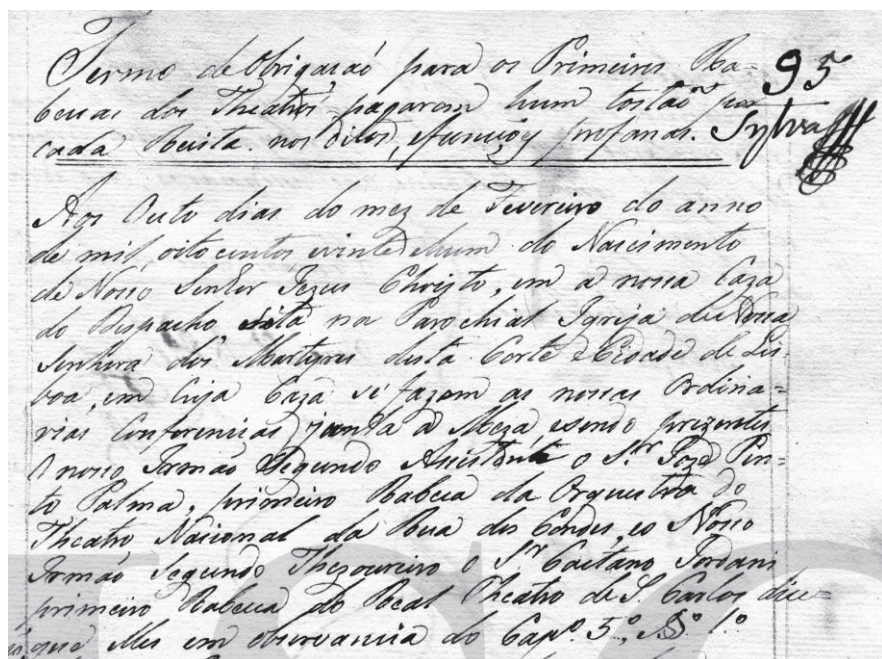 Termo de Obrigacaó para os Primeiros Ra=
becas dos Theatros, pagarem hum tostaõ por
cada Récita nos ditos, funcoẽs profanas.
95
Sylva
Aos Outo dias do mez de Fevereiro do anno
de mil, oito centos, e vinte e hum do Nascimento
de Nosso Senhor Jezus Christo, em a nossa Caza
do Despacho sita na Parochial Igreja de Nossa
Senhora dos Martyres desta Corte e Cidade de Lis=
boa, em Cuja Caza se fazem as nossas Ordina=
rias Conferencias, junta a Meza, e sendo prezentes
O nosso Irmaõ Segundo Assistente o S.r Jozé Pin=
to Palma, primeiro Rabeca da Orquestra do
Theatro Nacional da Rua dos Condes, e o Nosso
Irmaõ Segundo Thezoureiro o S.r Caetano Jordani
primeiro Rabeca do Real Theatro de S. Carlos disse=
que elles em observancia do Cap.º 5.º, §. 1.º